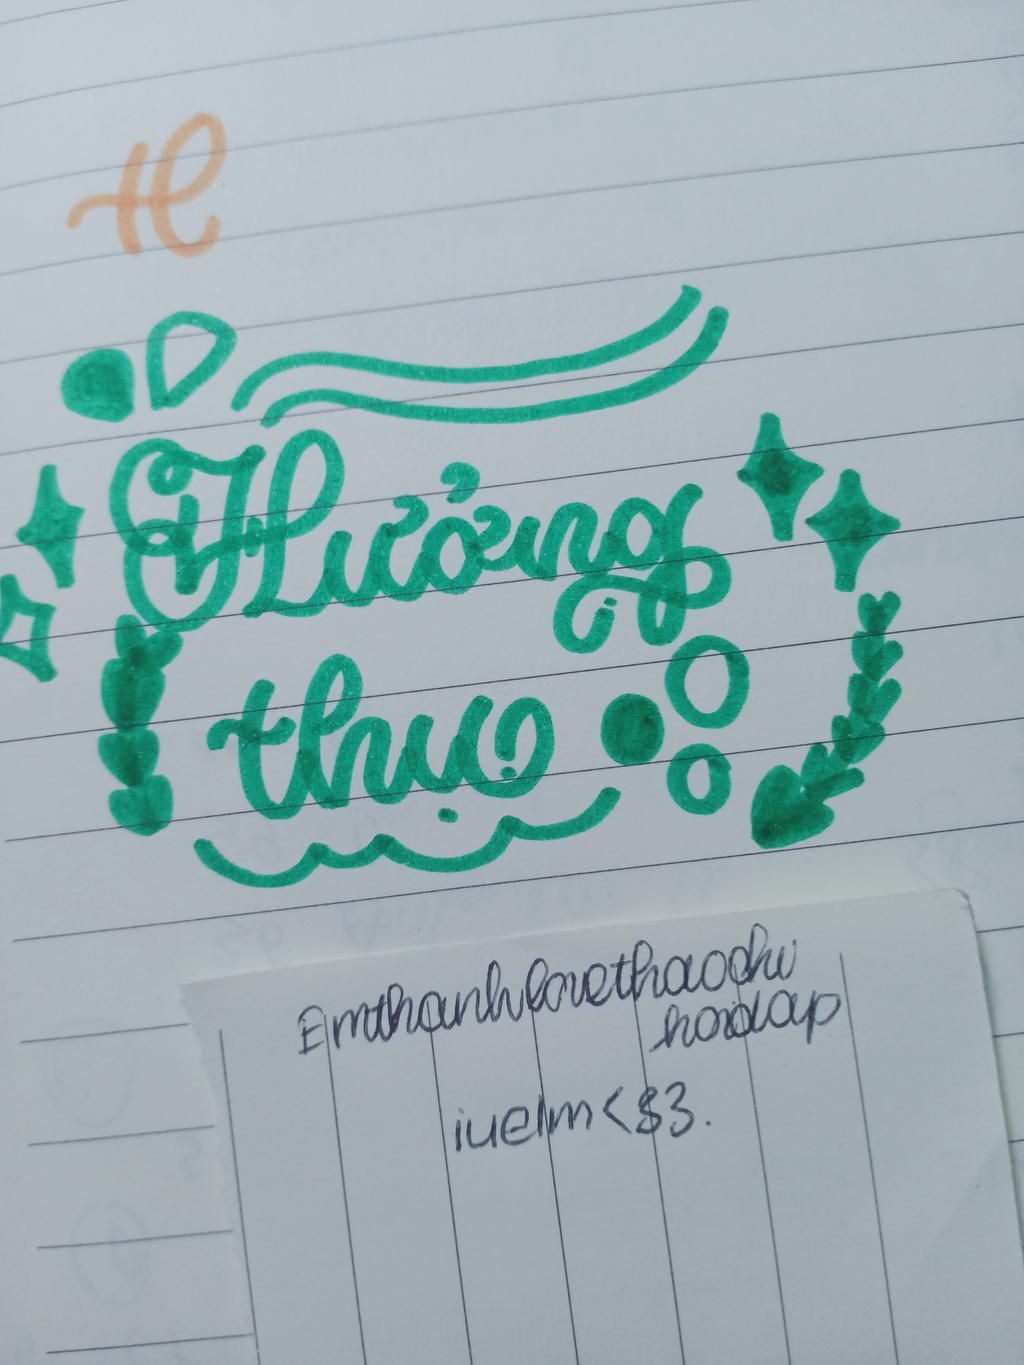 H
Hưởng
thụ
Emthanhlovethaochi
iuelm<$3.